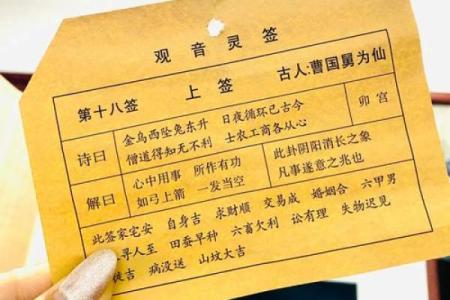 观音灵签
第十八签 上签 古人:曹国舅为仙
诗曰
金乌西坠兔东升 日夜循环已古今
僧道得知无不利 士农工商各从心
卯宫
解曰
心中用事 所作有功
如弓上箭 一发当空
此卦阴阳消长之象
凡事遂意之兆也
此签家宅安 自身吉 求财顺 交易成 婚姻合 六甲男
寻人至 田蚕早种 六畜欠利 讼有理 失物迟见
徙吉 病没送 山坟大吉